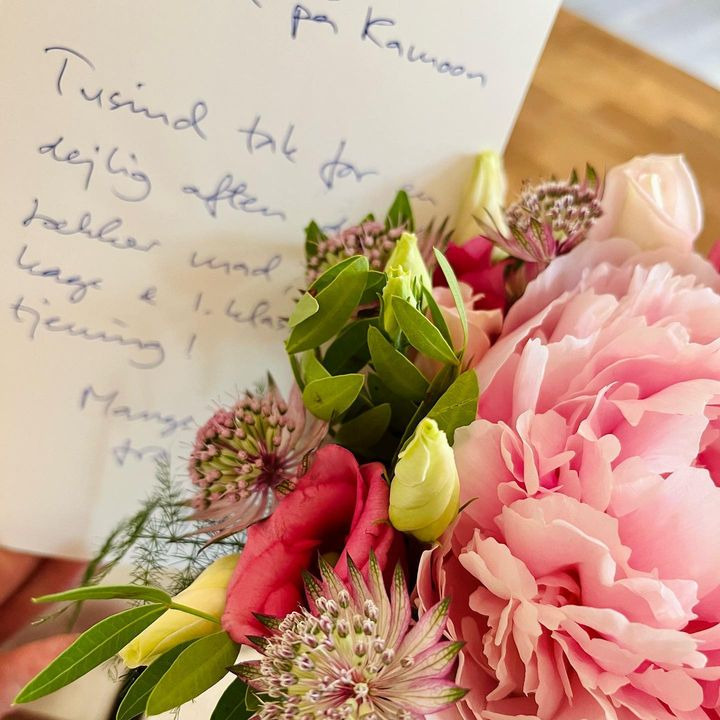 på Kamoon
Tusind tak for en
dejlig aften
lækker mad
kage & 1. klas
tjening!
Mange